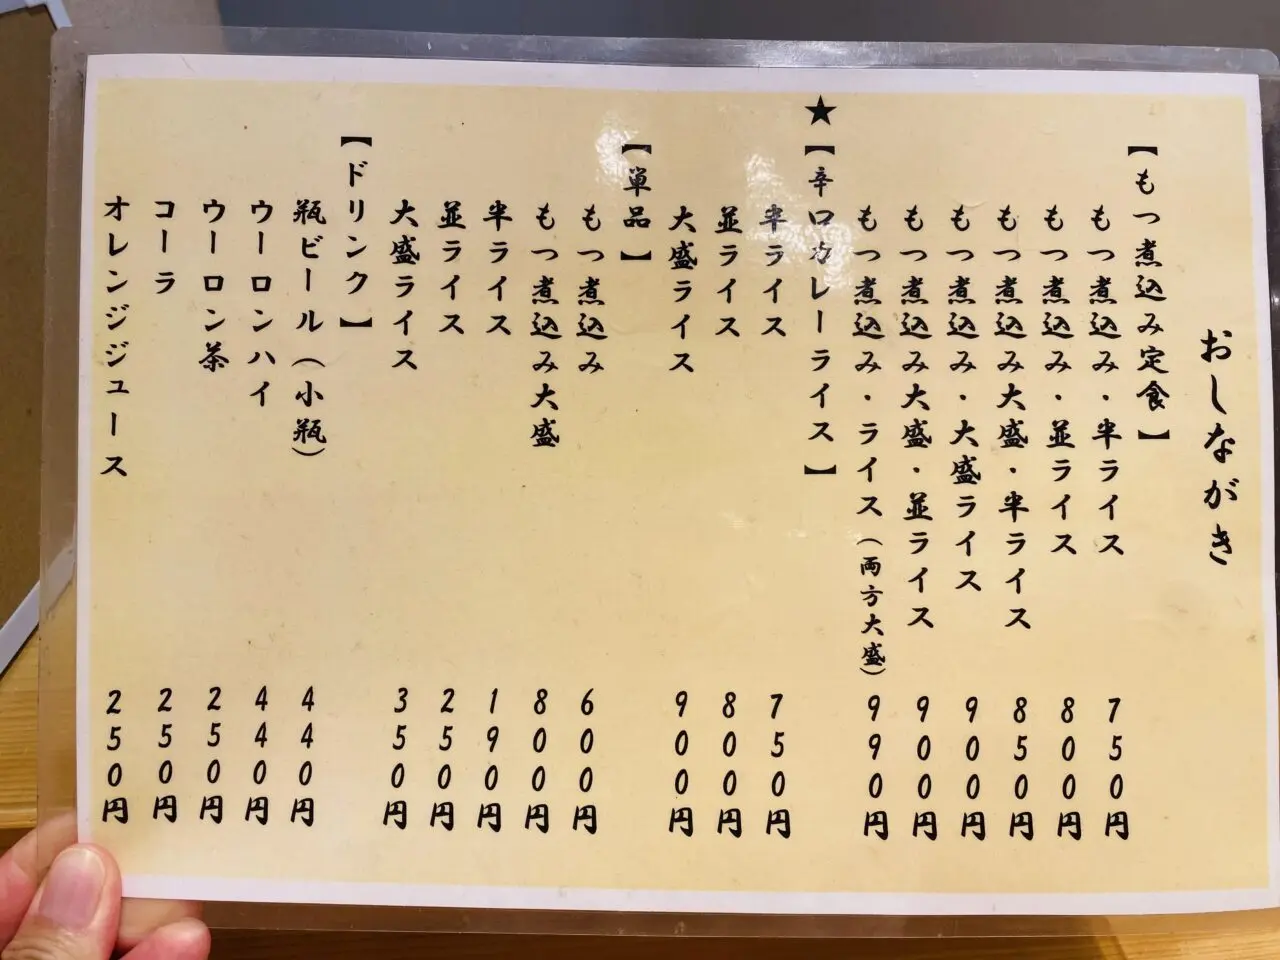 おしながき
【もつ煮込み定食】
もつ煮込み・半ライス 750円
もつ煮込み・並ライス 800円
もつ煮込み大盛・半ライス 850円
もつ煮込み・大盛ライス 900円
もつ煮込み大盛・並ライス 900円
もつ煮込み・ライス（両方大盛） 990円
★【辛口カレーライス】
半ライス 750円
並ライス 800円
大盛ライス 900円
【単品】
もつ煮込み 600円
もつ煮込み大盛 800円
半ライス 190円
並ライス 250円
大盛ライス 350円
【ドリンク】
瓶ビール（小瓶） 440円
ウーロンハイ 440円
ウーロン茶 250円
コーラ 250円
オレンジジュース 250円